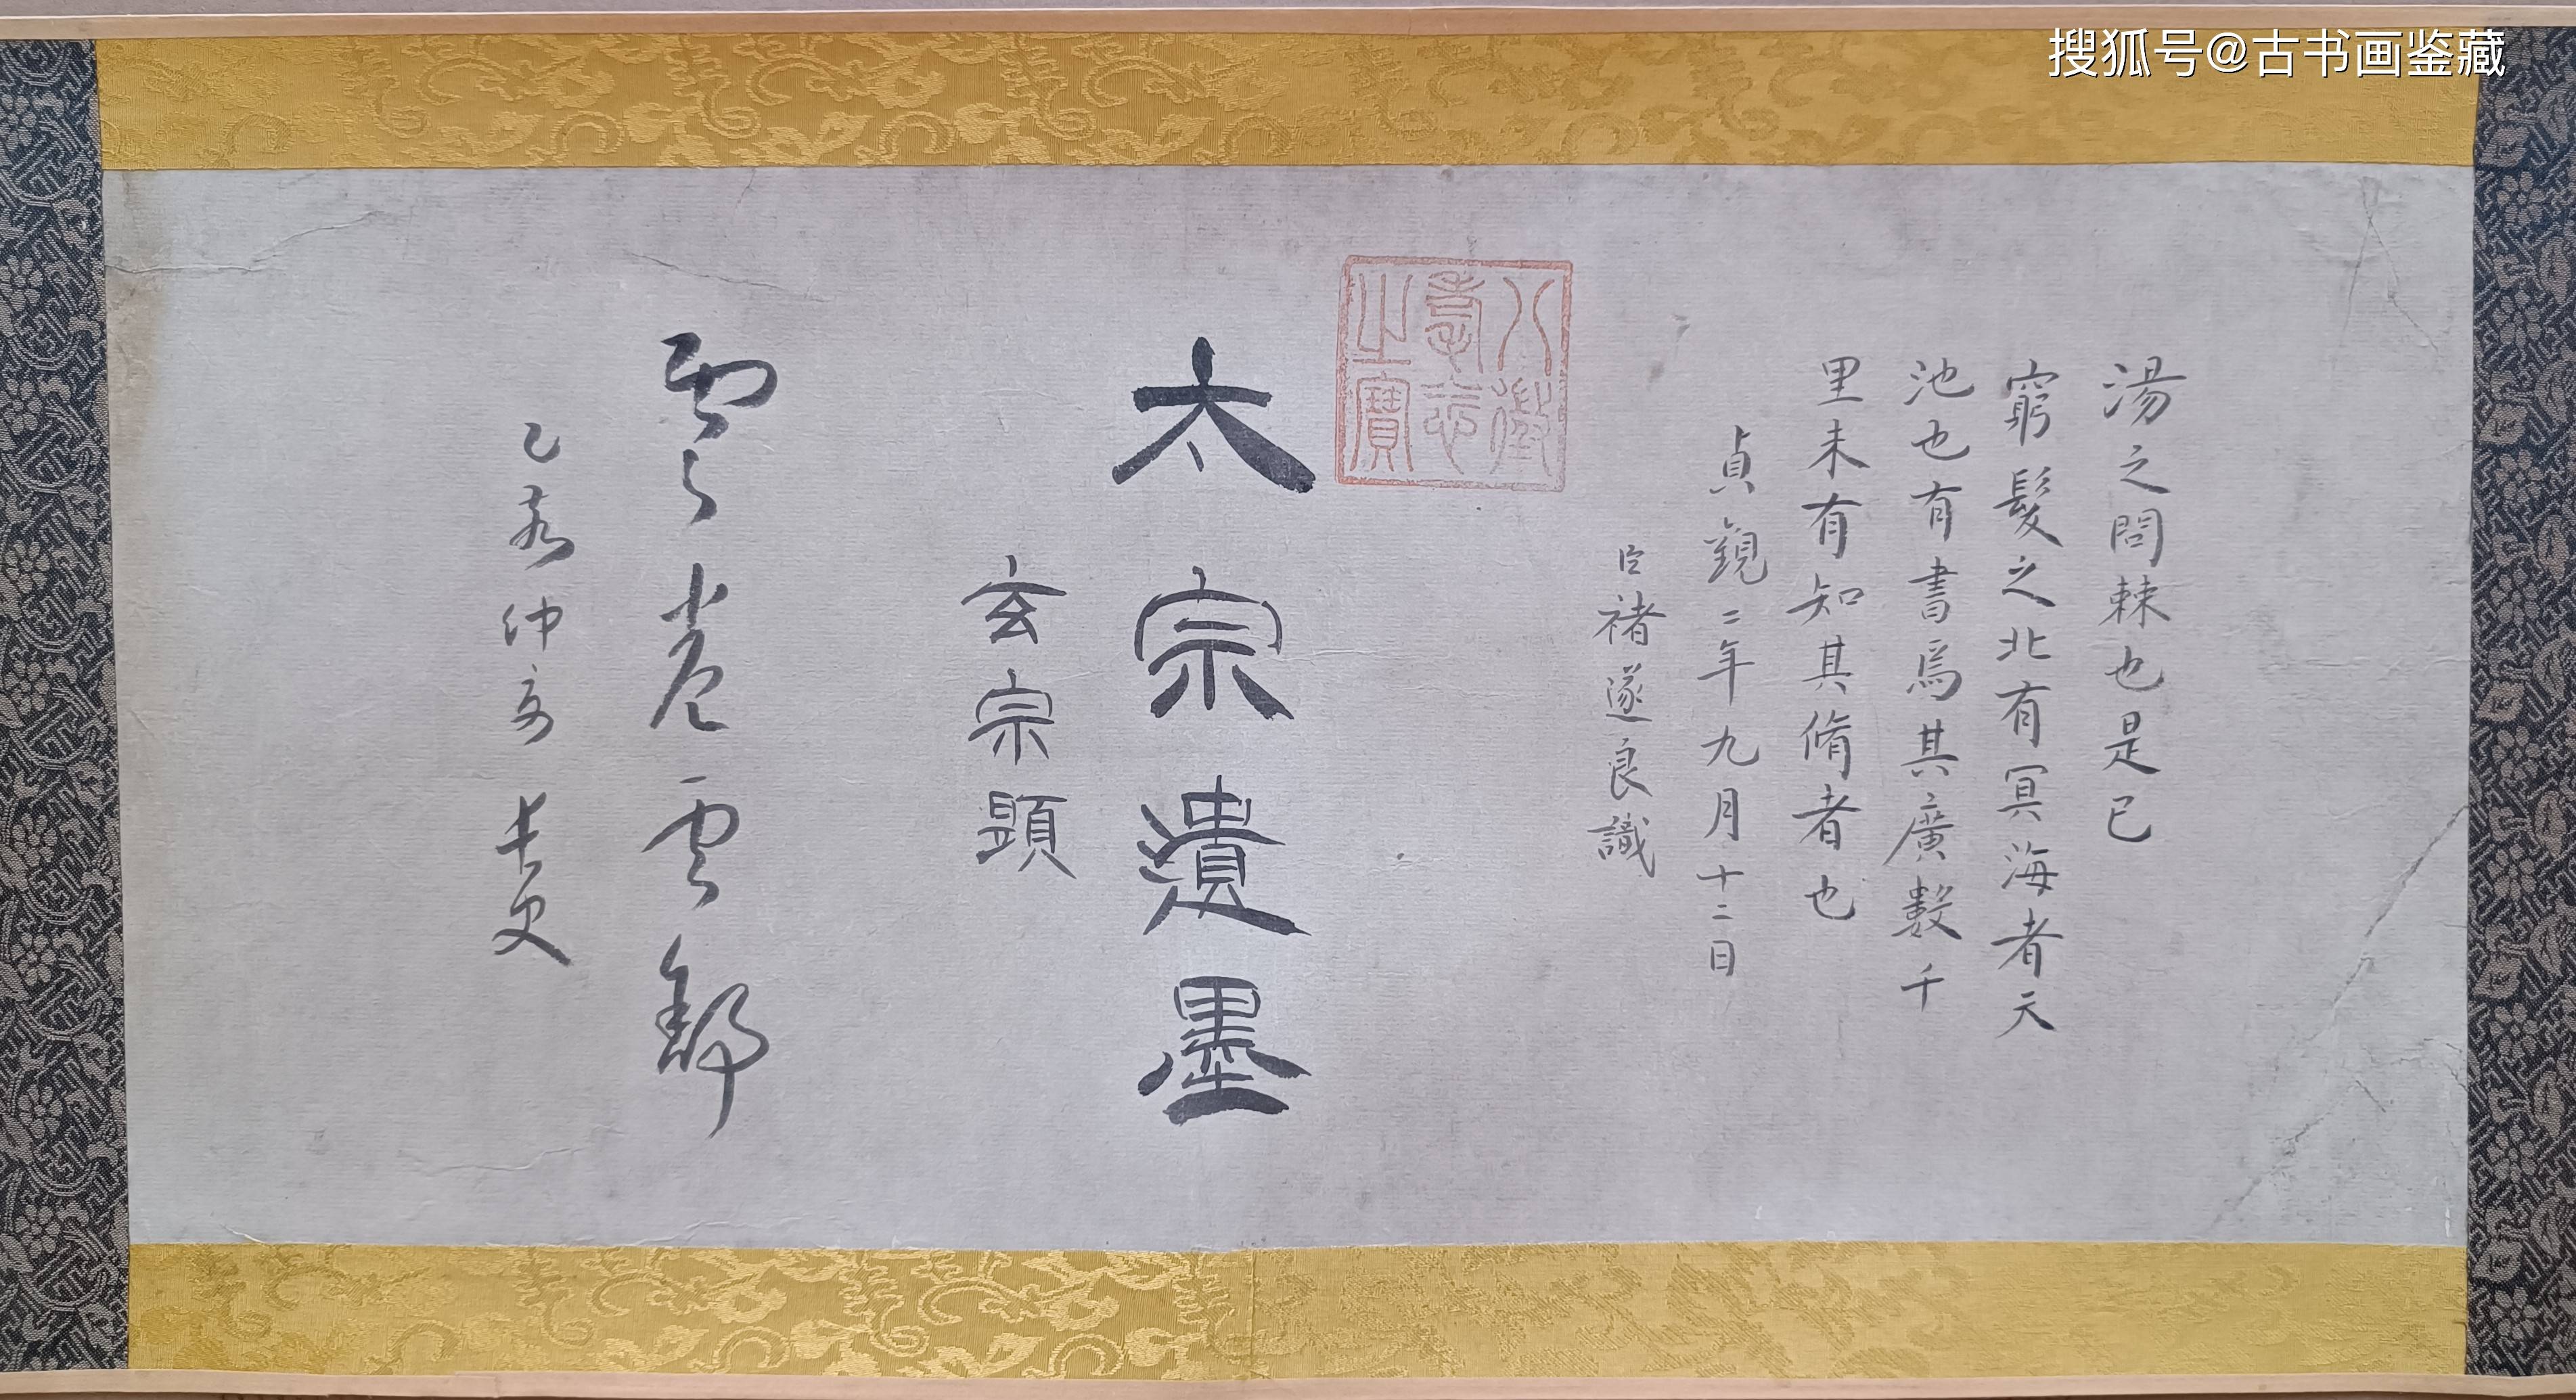 搜狐号@古书画鉴藏
湯之問棘也是已
窮髮之北有冥海者天
池也有書焉其廣數千
里未有知其脩者也
貞觀二年九月十二日
臣褚遂良識
八徵
耄念
之寶
太宗遺墨
玄宗題
雲
乙 仲 長史